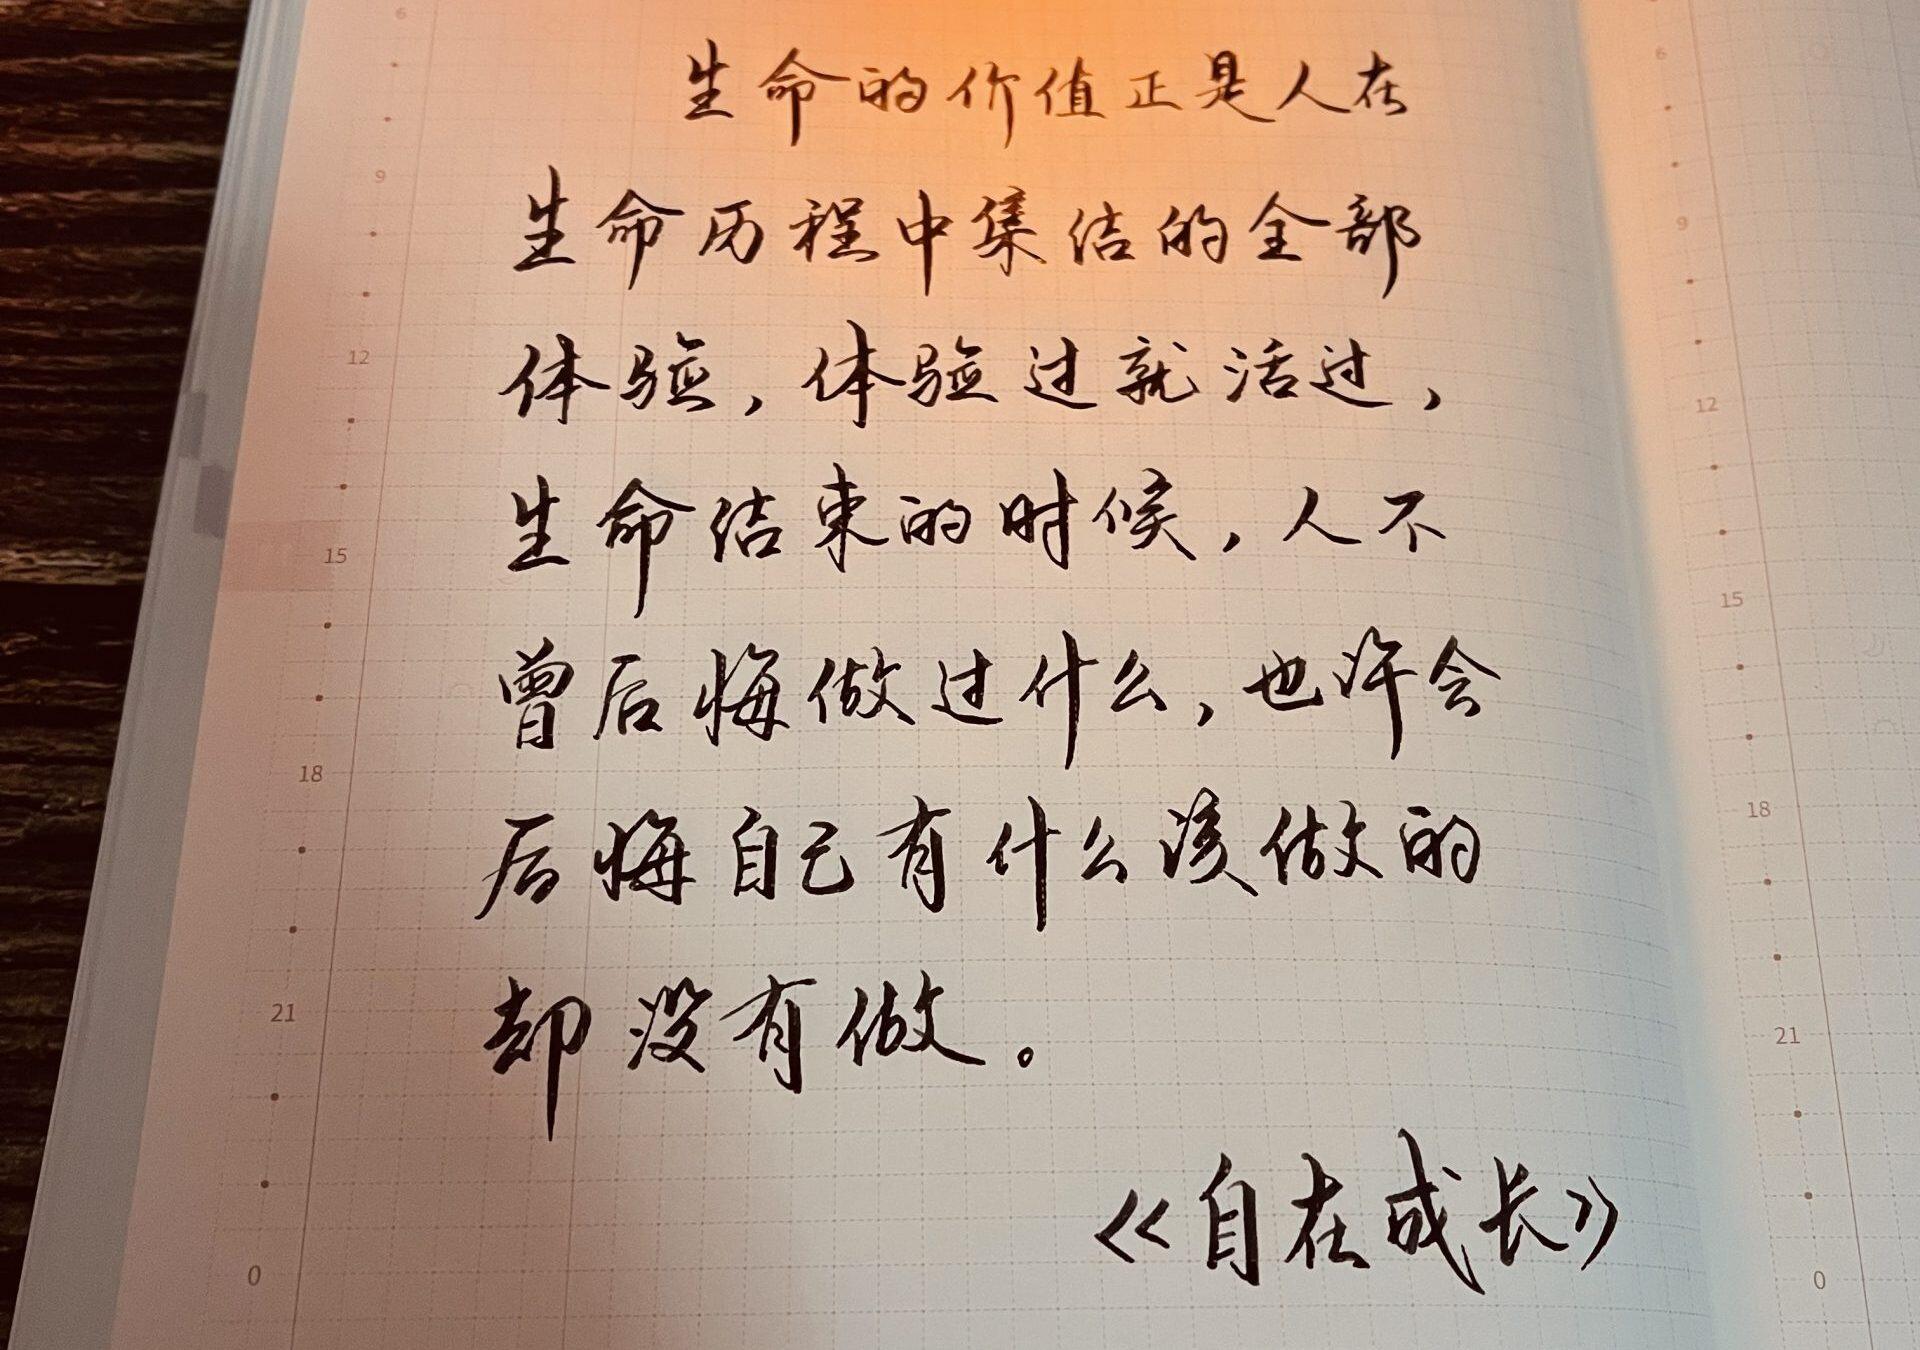 生命的价值正是人在
生命历程中集结的全部
体验，体验过就活过，
生命结束的时候，人不
曾后悔做过什么，也许会
后悔自己有什么该做的
却没有做。
《自在成长》
6
9
12
15
18
21
0
6
9
12
15
18
21
0